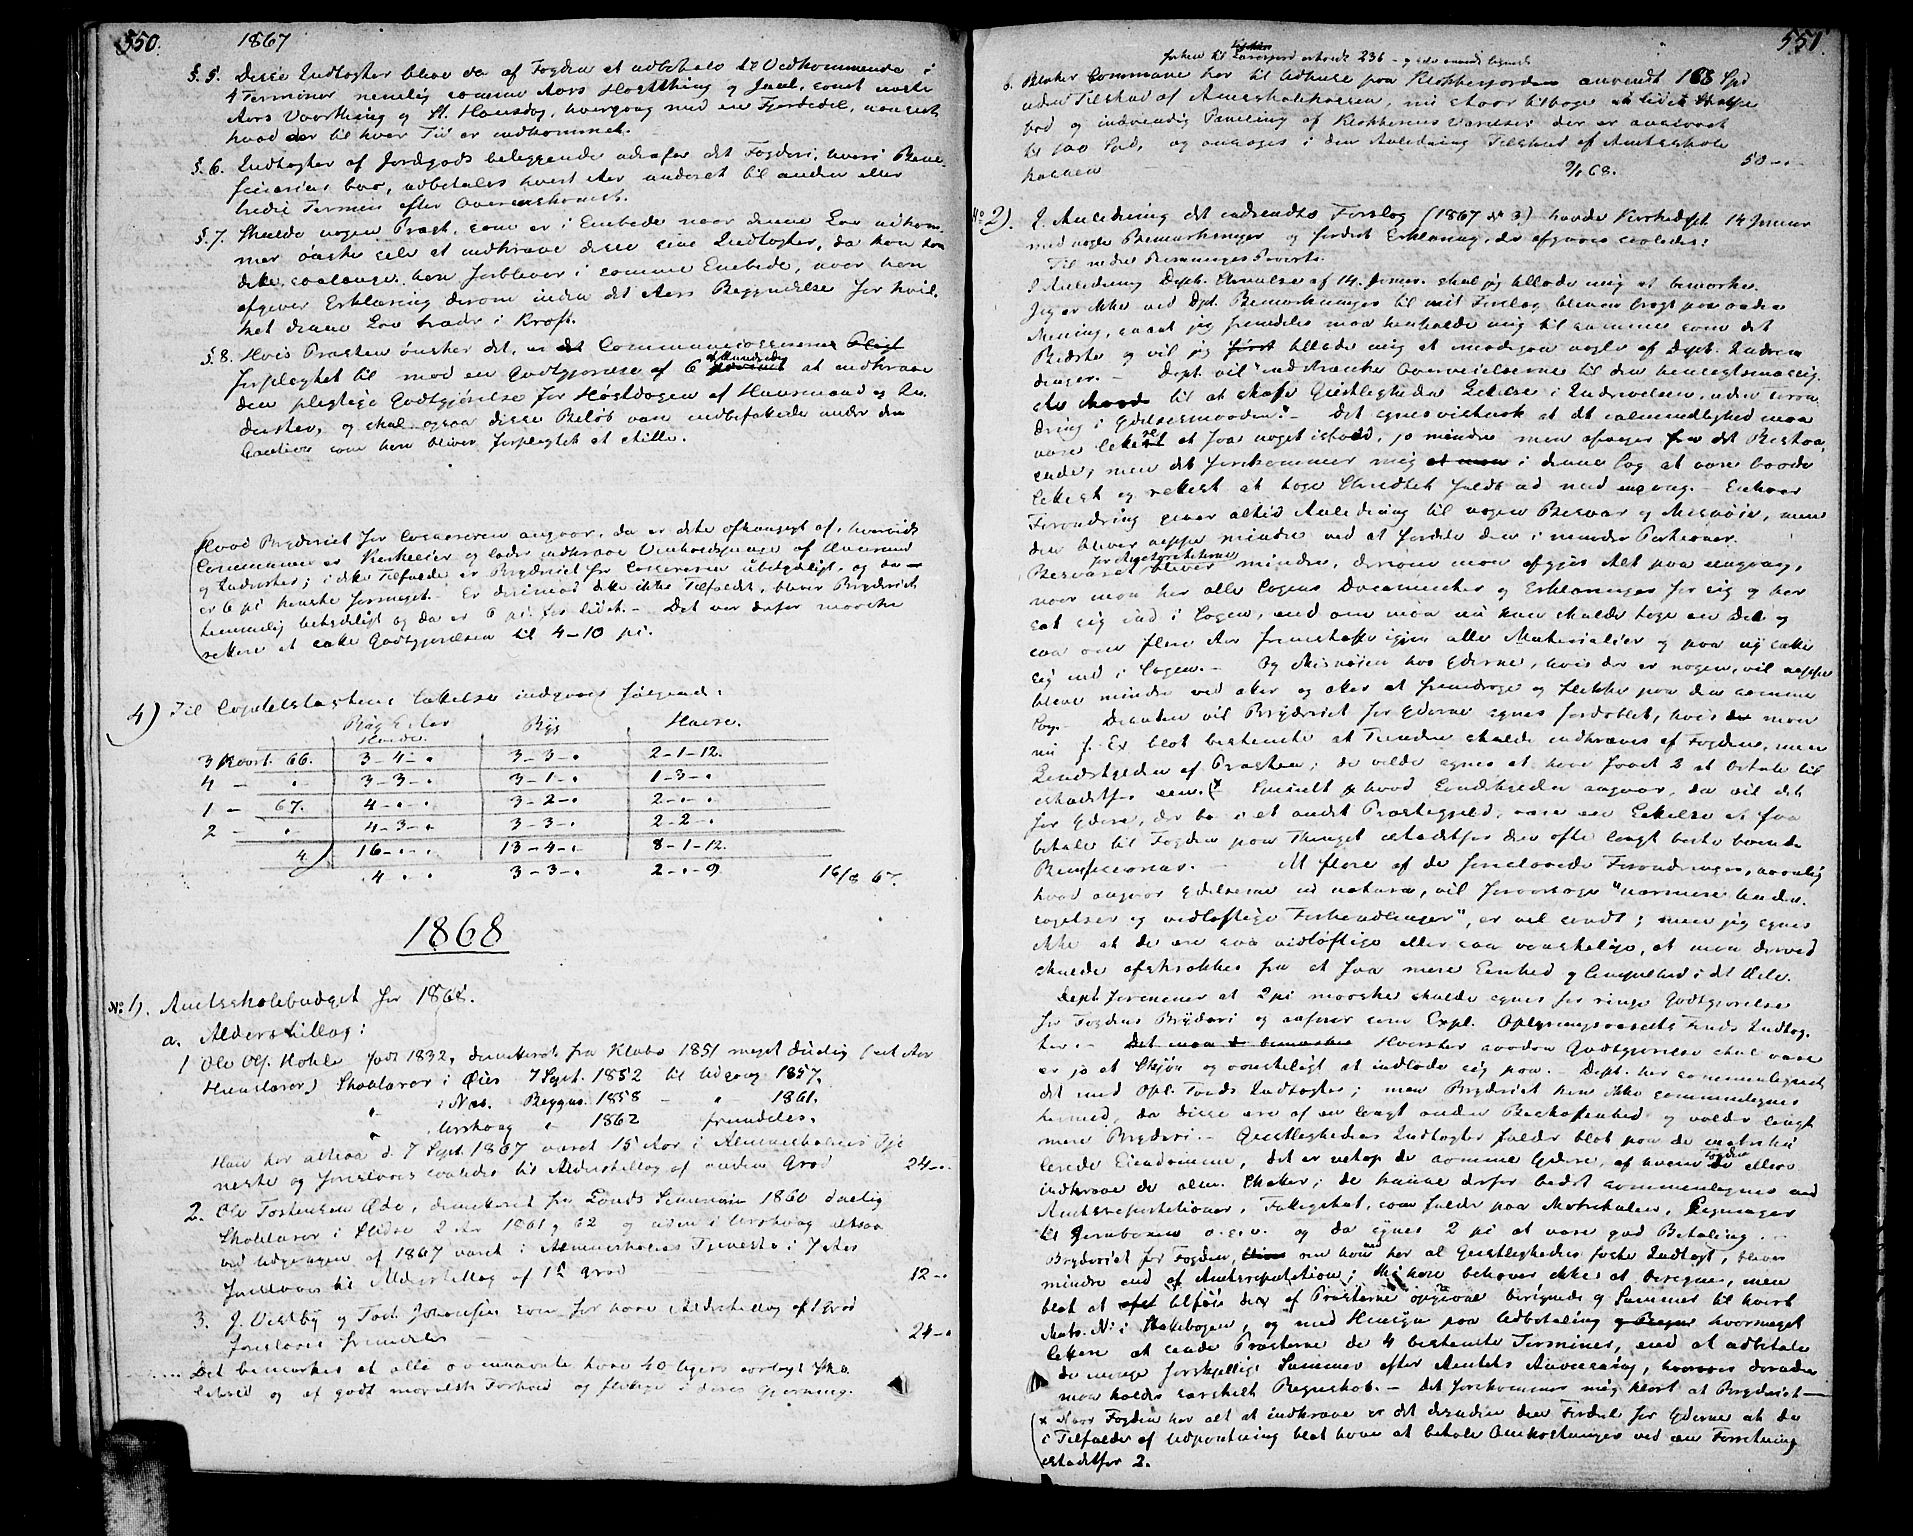 550.
1867
§. 5. Disse Indtægter blive da af Fogden at udbetale til Vedkommende i
4 Terminer nemlig samme Aars Høstthing og Juul, samt næste
Aars Vaarthing og St. Hansdag, hvergang med en Fjerdedel, uanseet
hvad der til hver Tid er indkommet.
§. 6. Indtægter af Jordgods beliggende udenfor det Fogderi, hvori Bene-
ficiarius boer, udbetales hvert Aar under et til anden eller
tredie Termin efter Overenskomst.
§. 7. Skulde nogen Præst, som er i Embede naar denne Lov udkom-
mer ønske selv at indkræve disse sine Indtægter, da kan han
dette, saalænge han forbliver i samme Embede, naar han
afgiver Erklæring derom inden det Aars Begyndelse for hvil-
ket denne Lov træder i Kraft.
§. 8. Hvis Præsten ønsker det, er det Communecassererens Pligt
forpligtet til mod en Godtgjørelse af 6 af Hundrede procent at indkræve
den pligtige Godtgjørelse for Høstdagen af Huusmænd og In-
derster, og skal ogsaa disse Beløb være indbefattede under den
Caution som han bliver forpligtet at stille.
Hvad Bryderiet for Cassereren angaaer, da er dette afhængigt af, hvorvidt
Communen er Kirkeeier og lader indkræve af Huusmænd
og Inderster; i dette Tilfælde er Bryderiet for Cassereren ubetydeligt, og da
er 6 pC. kanske formeget. Er derimod dette ikke Tilfældet, bliver Bryderiet
temmelig betydeligt og da er 6 pC. for lidet. Det var derfor maaske
rettere at sætte Godtgjørelsen til 4-10 pC.
4) Til Capitelstaxtens Sættelse indgaves følgende:
Byg Byg Havre.
3 Kvart. 66. 3-4-. 3-3-. 2-1-12.
4 - . 3-3-. 3-1-. 1-3-.
1 - 67. 4-.-. 3-2-. 2-.-.
2 - . 4-3-. 3-3-. 2-2-.
4 16-.-. 13-4-. 8-1-12.
4 . . 3-3-. 2-.-9 16/8 67.
1868
No. 1). Amtsskolebudget for 1868.
a. Alderstillæg:
1 Ole Ols. Hohle født 1832, dimitteret fra Klæbo 1851 meget duelig (eet Aar
Huuslærer) Skolelærer i Øier 7 Sept. 1852 til Udgang 1857.
i Næs. Beggns. 1858 - " 1861.
Urskoug " 1862 fremdeles.
Han har altsaa d. 7 Sept. 1867 været 15 Aar i Almueskolens Tje-
neste og foreslaaes saaledes til Alderstillæg af anden Grad 24-.
2. Ole Tostensen Øde, dimitteret fra Lunds Seminarie 1860 duelig
Skolelærer i Slidre 2 Aar 1861 og 62 og siden i Urskoug altsaa
ved Udgangen af 1867 været i Almueskolens Tjeneste i 7 Aar
foreslaaes til Alderstillæg af 1ste Grad 12-.
3. J. Vestby og Tost. Johansen som før have Alderstillæg af 1 Grad
foreslaaes fremdeles 24-.
Det bemærkes at alle ovennævnte have 40 Ugers aarligt Skole-
hold og af godt moralsk Forhold og flittige i deres Gjerning.
551.
b. Blaker Commune har til Udhuse paa Klokkergaarden anvendt 168 Spd
uden Tilskud af Amtsskolekassen, nu staaer tilbage et lidet Stolpe-
bod og indvendig Paneling af Klokkerens Værelser der er anslaaet
til 100 Spd, og ansøges i den Anledning Tilskud af Amtsskole-
kassen 50-.-
9/1 68.
No. 2). I Anledning det indsendte Forslag (1867 No 3) havde Kirkedept. 14 Januar
med nogle Bemærkninger og fordret Erklæring, der afgaves saaledes:
Til nedre Romeriges Provsti.
I Anledning Dept. Skrivelse af 14. Januar skal jeg tillade mig at bemærke.
Jeg er ikke ved Dpt. Bemærkninger til mit Forslag bleven bragt paa anden
Mening, saaat jeg fremdeles maa henholde mig til samme som det
Bedste og vil jeg først tillade mig at imødegaa nogle af Dept. Indven-
dinger. - Dept. vil "indskrænke Overveielserne til den hensigtsmæssig-
ste Maade til at skaffe Geistligheden Lettelse i Inddrivelsen, uden Foran-
dring i Ydelsesmaaden." - Det synes vistnok at det i Almindelighed maa
være lettere at faa noget istand, jo mindre man afviger fra det Bestaa-
ende, men det forekommer mig at man i denne Sag at være baade
lettest og rettest at tage Skridtet fuldt ud med engang. - Enhver
Forandring giver altid Anledning til nogen Besvær og Misnøie, men
den bliver neppe mindre ved at fordele den i mindre Portioner.
Besværet for Autoriteterne bliver mindre, dersom man afgjør Alt paa engang,
naar man har alle Sagens Documenter og Erklæringer for sig og har
sat sig ind i Sagen, end om man nu kun skulde tage en Deel og
saa om flere Aar fremskaffe igjen alle Materialier og paa ny sætte
sig ind i Sagen. - Og Misnøien hos Yderne, hvis der er nogen, vil neppe
blive mindre ved atter og atter at fremdrage og flikke paa den samme
Sag. - Desuden vil Bryderiet for Yderne synes fordoblet, hvis der man
nu f. Ex. blot bestemte at Tienden skulde indkræves af Fogden, men
Landskylden af Præsten; de vilde synes at have faaet 2 at betale til
istedetfor een. (x Specielt hvad Landskylden angaaer, da vil det
for Ydere, der bo i et andet Præstegjæld, være en Lettelse at faa
betale til Fogden paa Thinget istedetfor den ofte langt borte boende
Beneficiarius. - At flere af de foreslaaede Forandringer, navnlig
hvad angaaer Ydelserne in natura, vil foraarsage "nærmere Under-
søgelser og vidløftige Forhandlinger", er vel sandt; men jeg synes
ikke at de ere saa vidløftige eller saa vanskelige, at man derved
skulde afskrækkes fra at faa mere Eenhed og Simpelhed i det Hele.
Dept. formener at 2 pC maaske skulde synes for ringe Godtgjørelse
for Fogdens Bryderi og nævner som Expl. Oplysningsvæsenets Fonds Indtæg-
ter. - Det maa bemærkes Hvorstor saadan Godtgjørelse skal være
er jo et Skjøn og vanskeligt at indlade sig paa. - Dept. har sammenlignet
det med Opl. Fonds Indtægter; men Bryderiet kan ikke sammenlignes
hermed, da disse ere af en langt anden Beskaffenhed og volder langt
mere Bryderi. - Geistlighedens Indtægter falder blot paa de matriku-
lerede Eiendomme, det er netop de samme Ydere, af hvem Fogden de ellers
indkræve de alm. Skatter; de kunne derfor bedst sammenlignes med
Amtsrepartitioner, som falde paa Matrikulen, 
til Jernbanen o.s.v. og da synes 2 pC at være god Betaling. -
Bryderiet for Fogden, om han med har al Geistlighedens faste Indtægt, bliver
mindre end af Amtsrepartition; thi han behøver ikke at beregne, men
blot at tilføie den af Præsterne opgivne beregnede Summer til hvert
Matr. No i Skattebogen, og med Hensyn paa Udbetaling hvormeget
lettere at sende Præsterne de 4 bestemte Terminer, end at udbetale
de mange forskjellige Summer efter Amtets Anviisning, hvorover desuden
maa holdes særskilt Regnskab. - Det forekommer mig klart at Bryderiet -
x Naar Fogden har alt at indkræve er det desuden den Fordeel for Yderne at de
i Tilfælde af Udpantning blot have at betale Omkostninger ved een Forretning
istedetfor 2.